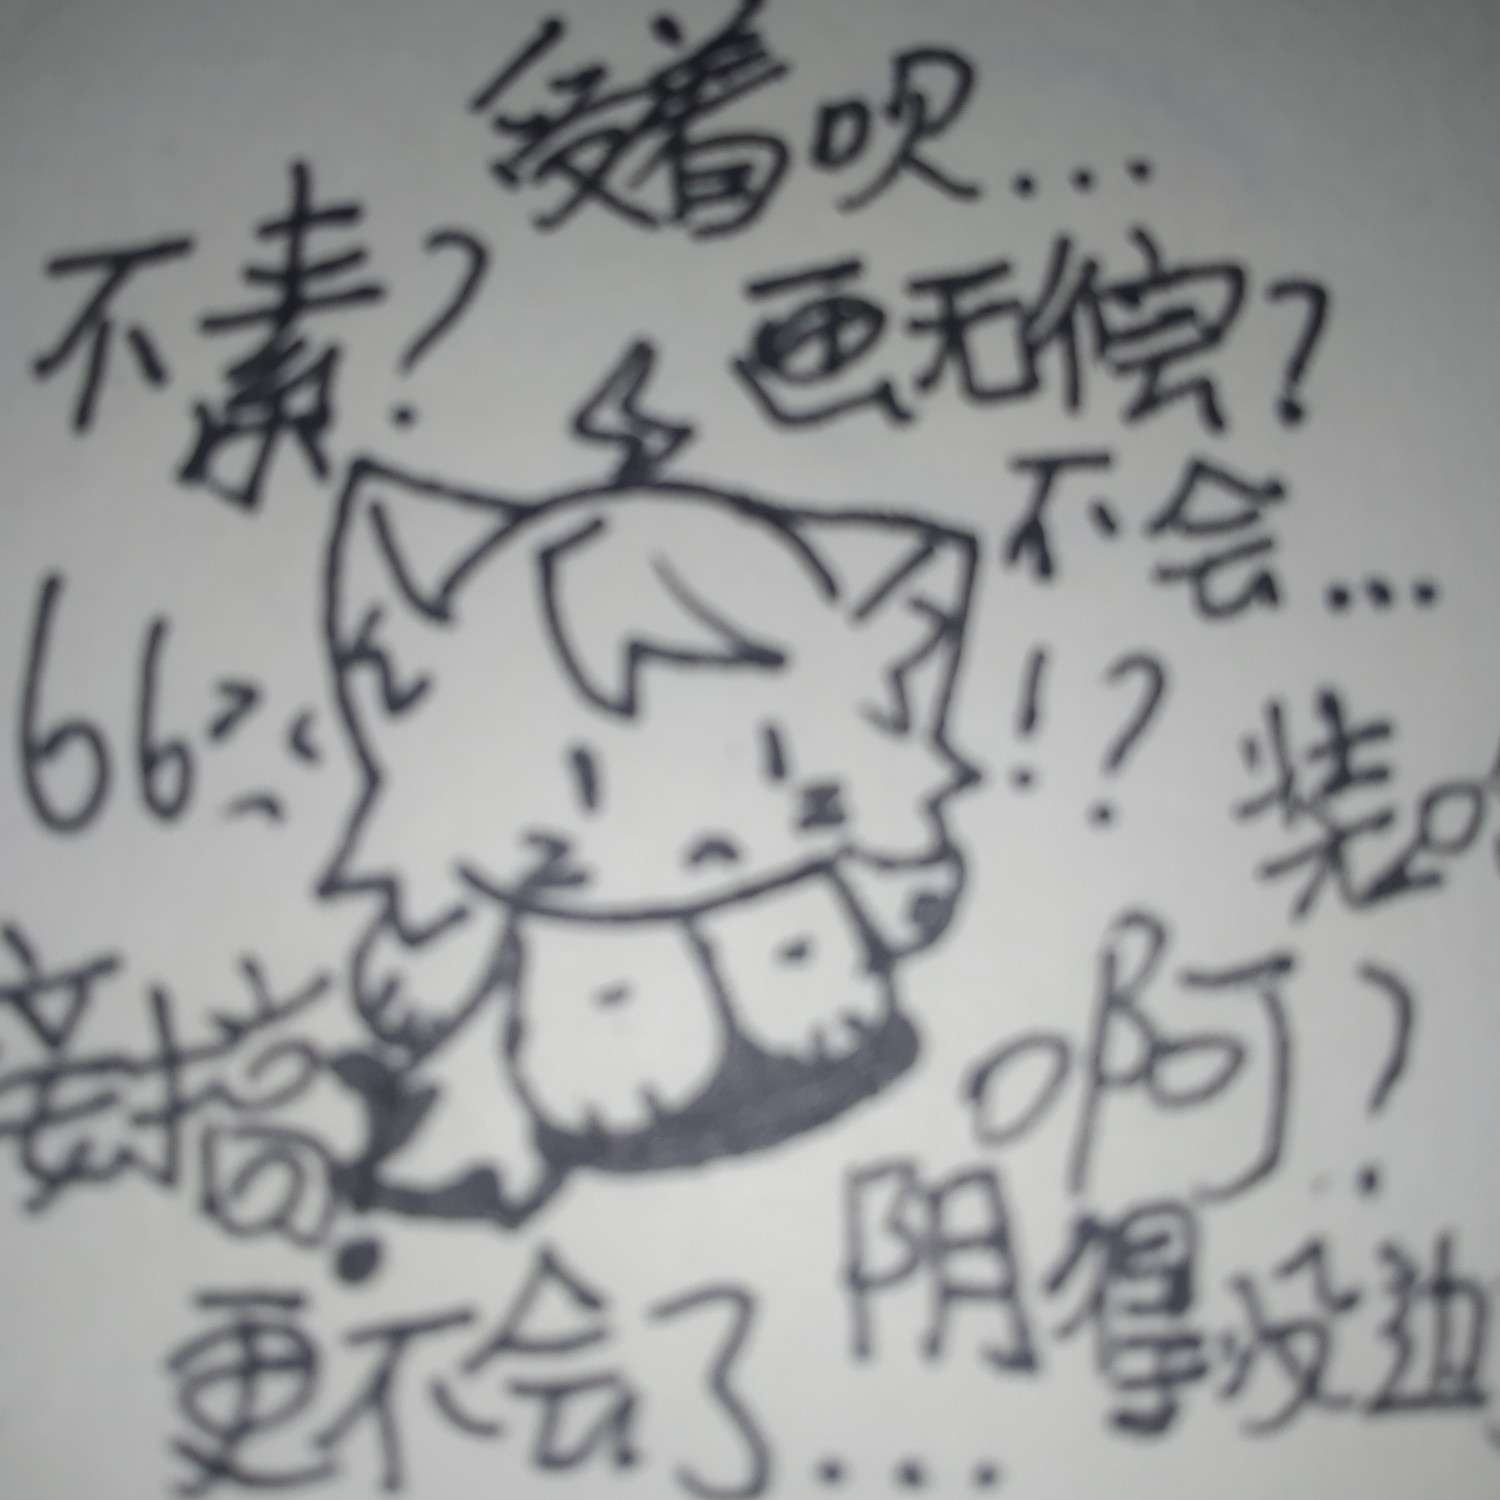 受着呗...
不素?
画无偿?
不会...
66
!?
装
啊?
接稿
阴得没边
更不会了...